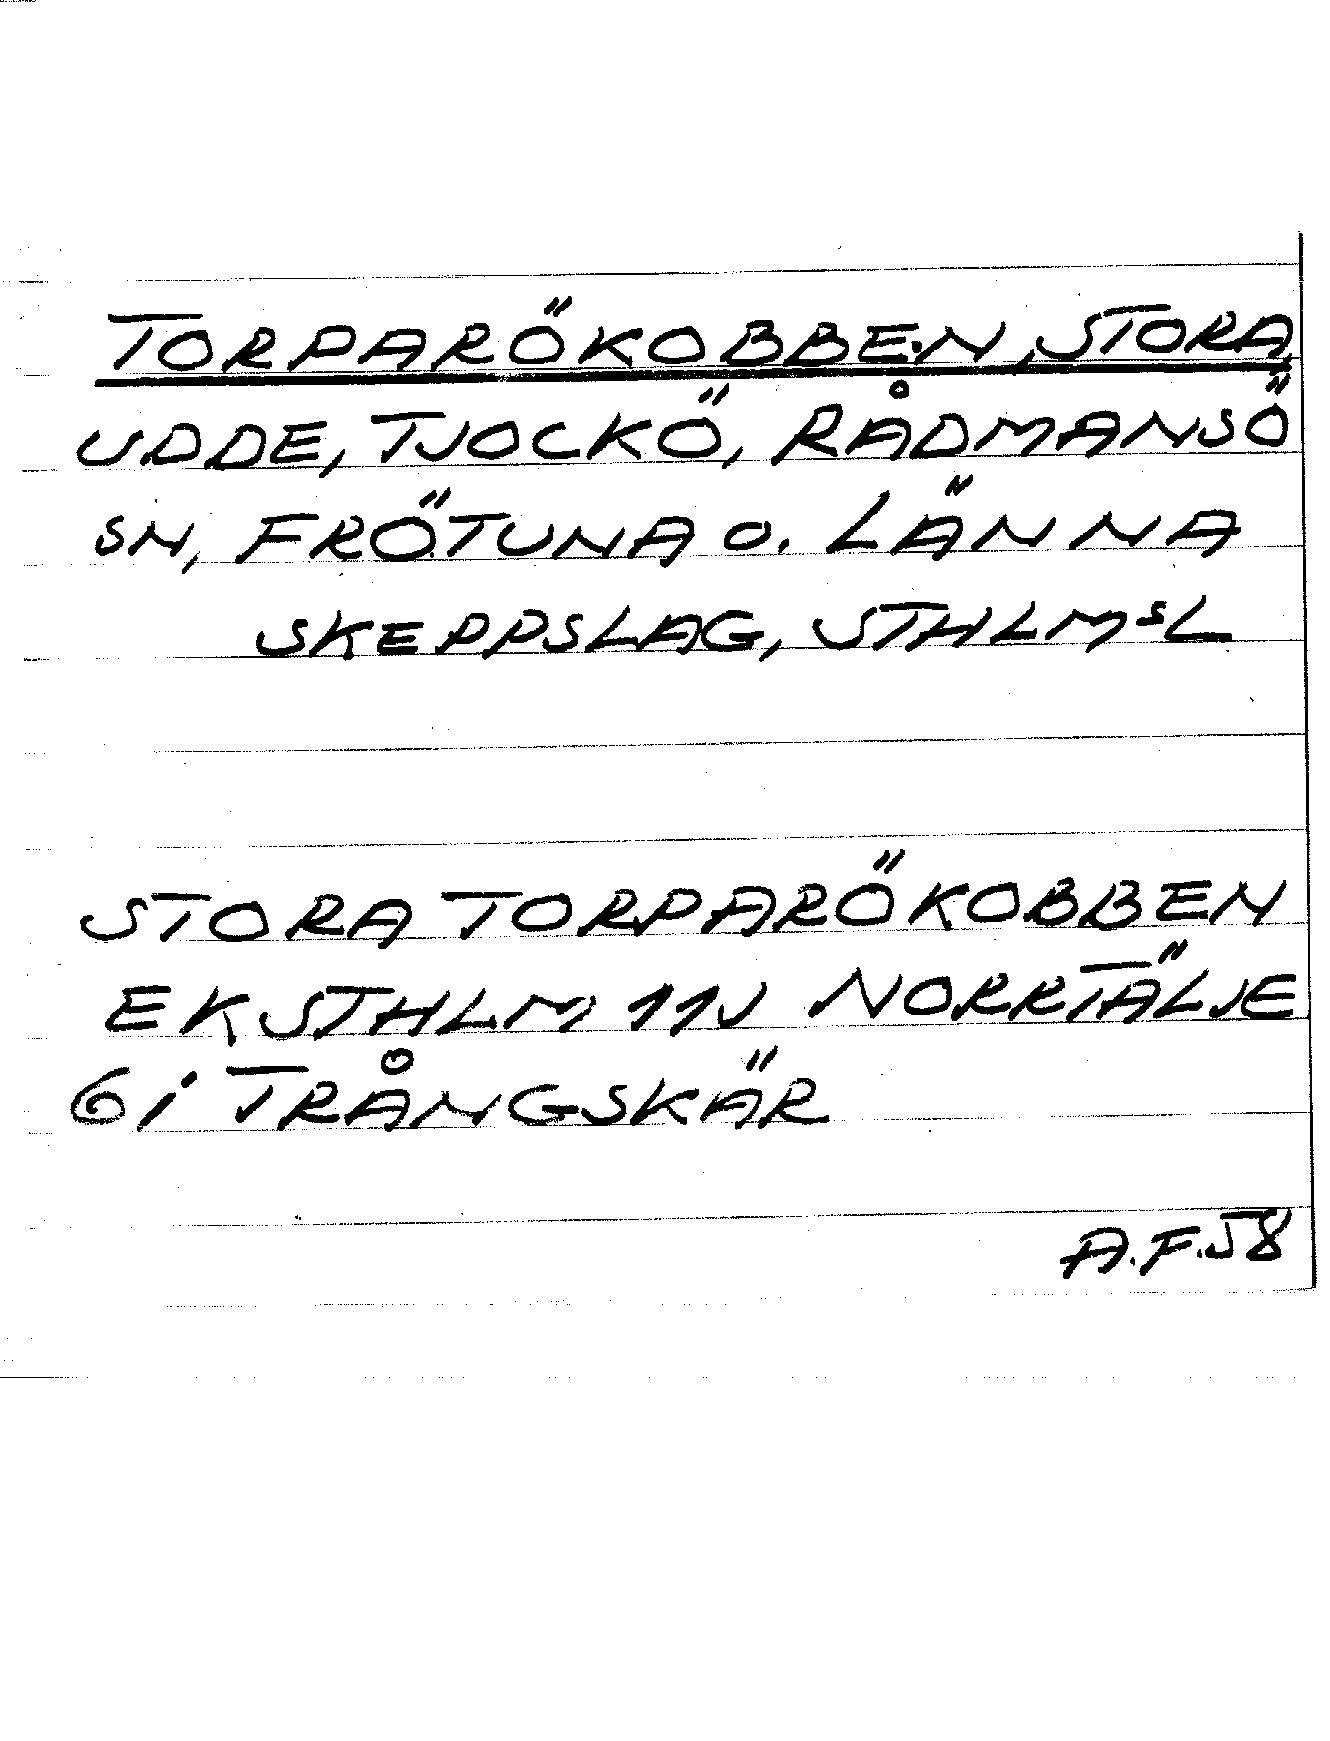 TORPARÖKOBBEN, STORA,
UDDE, TJOCKÖ, RÅDMANSÖ
SN, FRÖTUNA O. LÄNNA
SKEPPSLAG, STHLMSL
STORA TORPARÖKOBBEN
EK STHLM 11J NORRTÄLJE
6i TRÅNGSKÄR
A.F.58